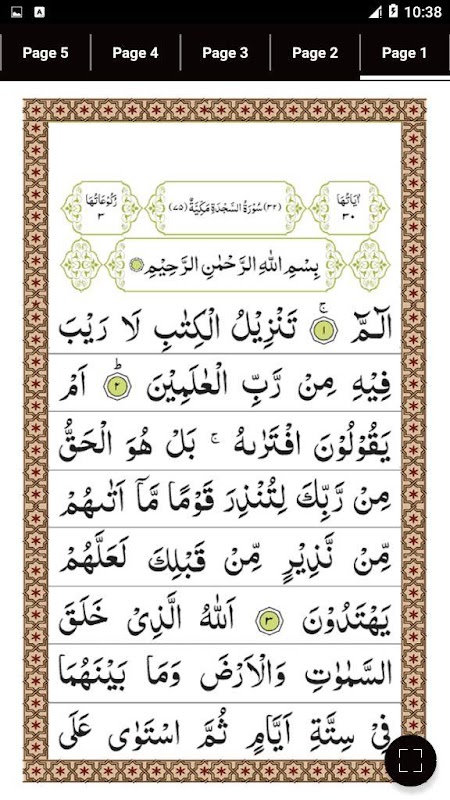 10:38
Page 5 Page 4 Page 3 Page 2 Page 1
اٰيَاتُهَا ٣٠
(٣٢) سُوْرَةُ السَّجْدَةِ مَكِّيَّةٌ (٧٥)
رُكُوْعَاتُهَا ٣
بِسْمِ اللّٰهِ الرَّحْمٰنِ الرَّحِيْمِ
الٓمّٓ ۚ ١ تَنْزِيْلُ الْكِتٰبِ لَا رَيْبَ
فِيْهِ مِنْ رَّبِّ الْعٰلَمِيْنَ ؕ ٢ اَمْ
يَقُوْلُوْنَ افْتَرٰىهُ ۚ بَلْ هُوَ الْحَقُّ
مِنْ رَّبِّكَ لِتُنْذِرَ قَوْمًا مَّاۤ اَتٰىهُمْ
مِّنْ نَّذِيْرٍ مِّنْ قَبْلِكَ لَعَلَّهُمْ
يَهْتَدُوْنَ ٣ اَللّٰهُ الَّذِيْ خَلَقَ
السَّمٰوٰتِ وَالْاَرْضَ وَمَا بَيْنَهُمَا
فِيْ سِتَّةِ اَيَّامٍ ثُمَّ اسْتَوٰى عَلَى